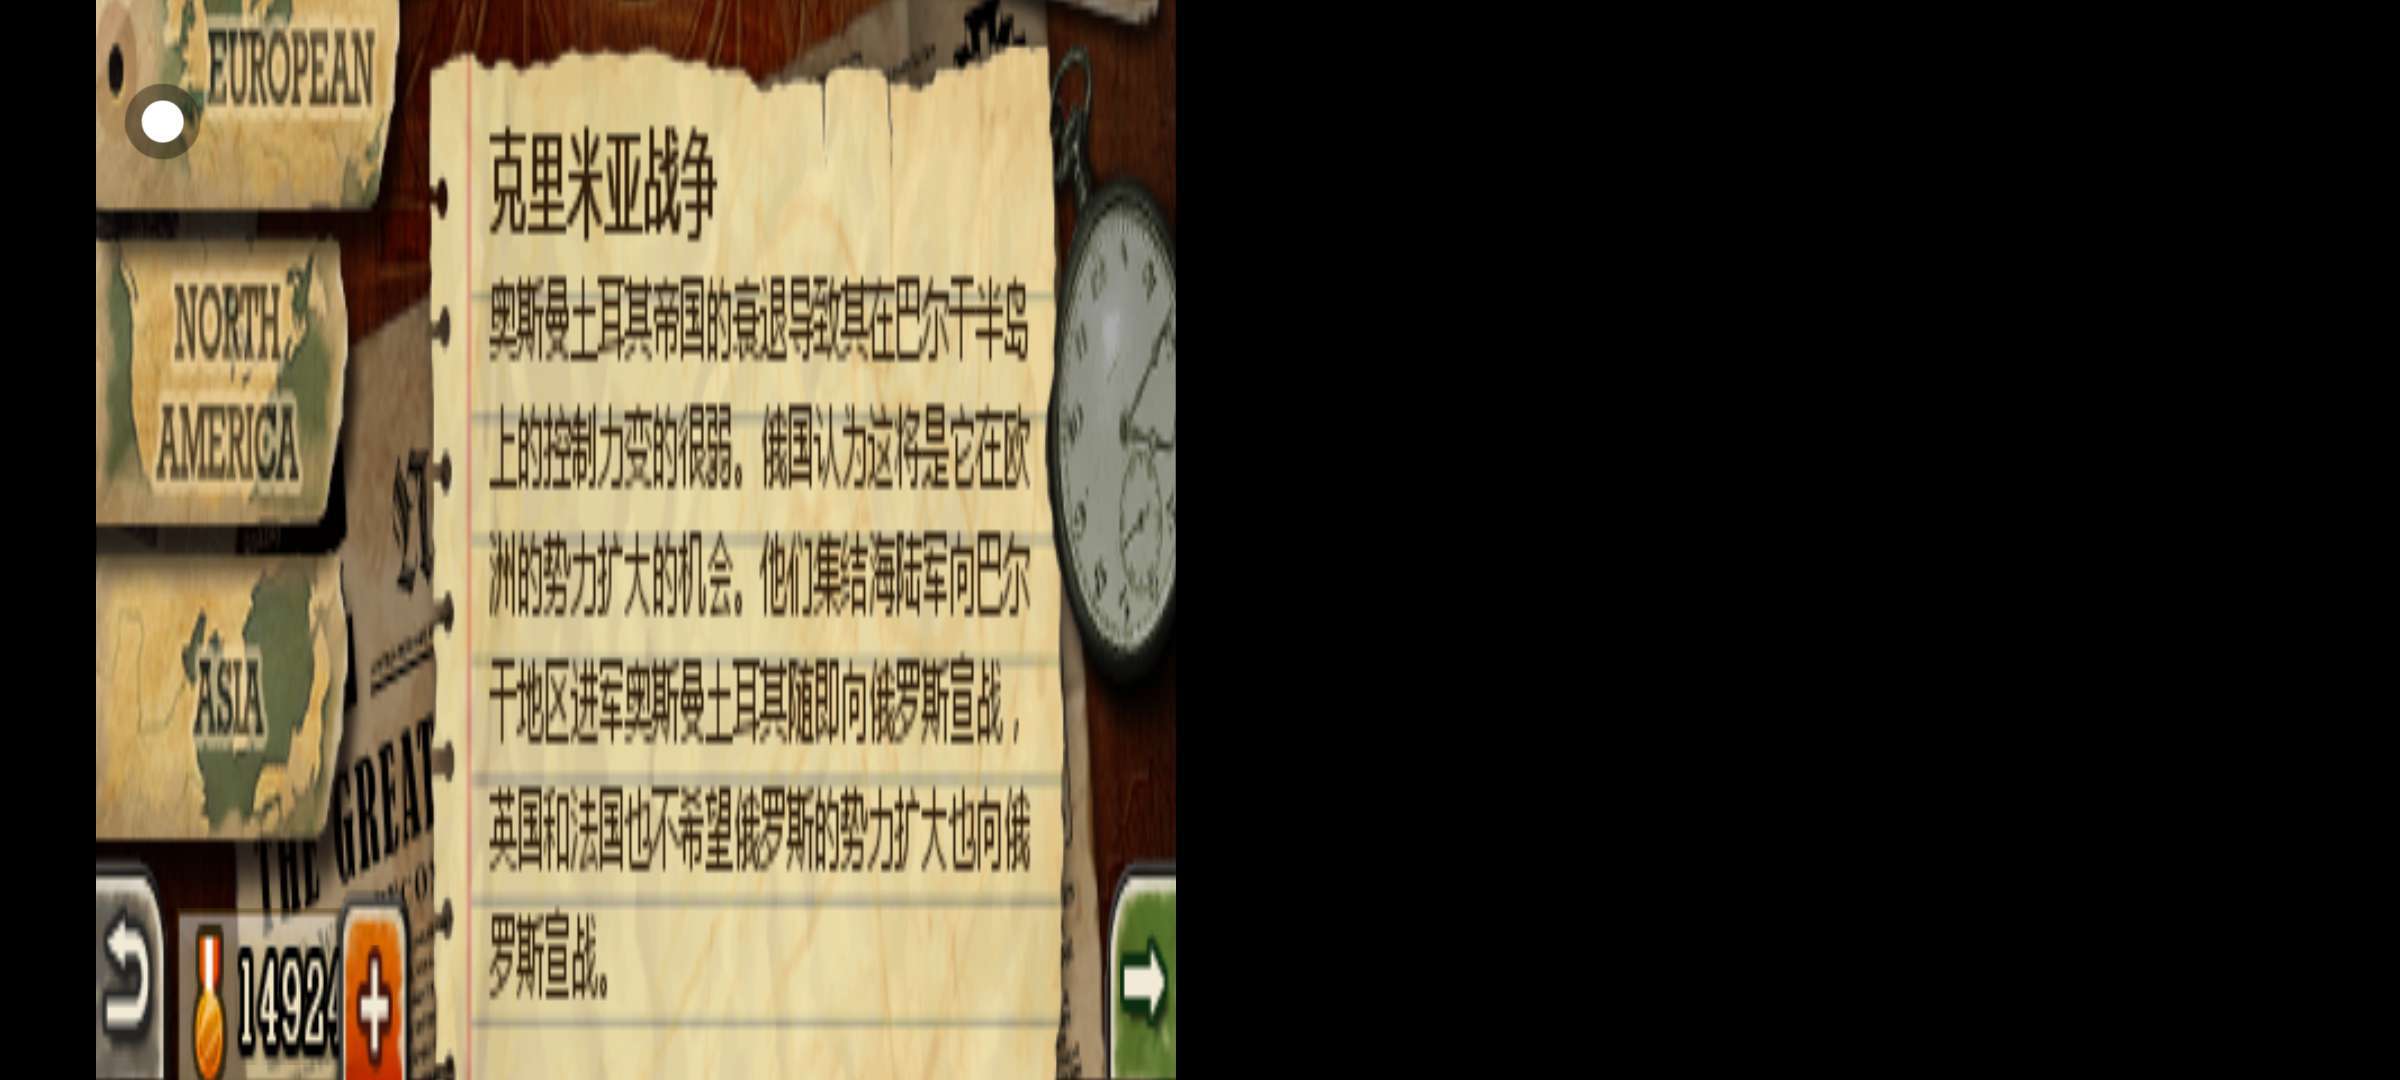 EUROPEAN
NORTH
AMERICA
ASIA
克里米亚战争
奥斯曼土耳其帝国的衰退导致其在巴尔干半岛
上的控制力变的很弱。俄国认为这将是它在欧
洲的势力扩大的机会。他们集结海陆军向巴尔
干地区进军奥斯曼土耳其随即向俄罗斯宣战，
英国和法国也不希望俄罗斯的势力扩大也向俄
罗斯宣战。
THE GREAT
14924